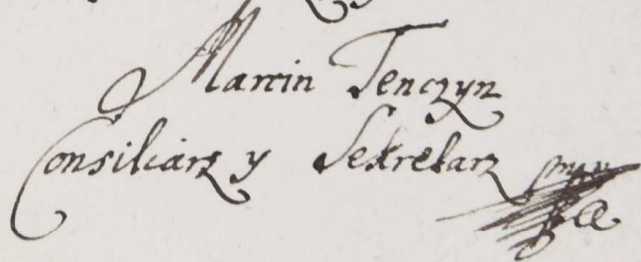 Marcin Tenczyn
Consiliarz y Sekretarz